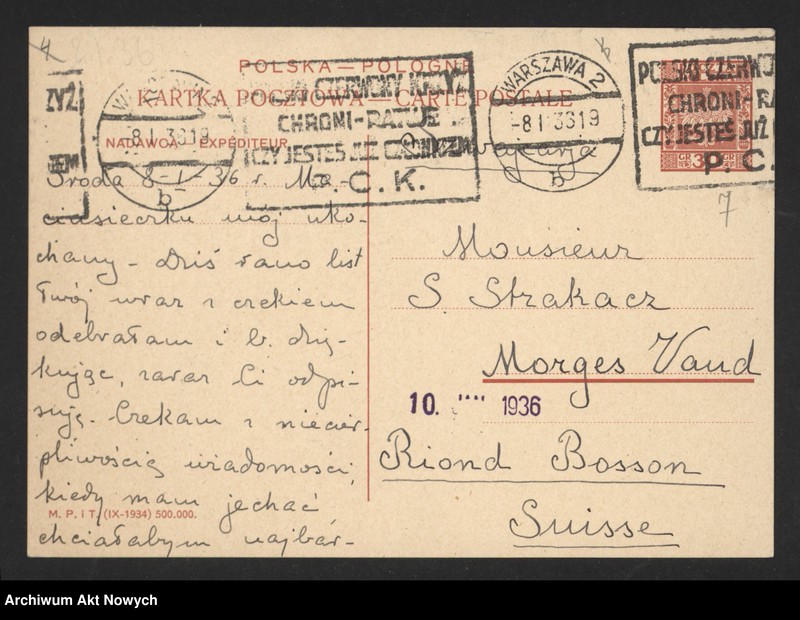 4
8.1.36
POLSKA — POLOGNE
KARTKA POCZTOWA — CARTE POSTALE
NADAWCA — EXPÉDITEUR
WARSZAWA 2
-8.I.3619
b
CZERWONY KRZYŻ
CHRONI-RATUJE
CZY JESTEŚ JUŻ CZŁONKIEM
P.C.K.
WARSZAWA 2
-8.I.3619
b
POLSKI CZERWO
CHRONI-RA
CZY JESTEŚ JUŻ
P.C.
ZYŻ
IEM
7
Szwajcarja
Środa 8-I-36 r. Ma-
ciusieczku mój uko-
chany – Dziś rano list
Twój wraz z czekiem
odebrałam i b. dzię-
kując, zaraz Ci odpi-
suję. Czekam z niecier-
pliwością wiadomości,
kiedy mam jechać
chciałabym najbar-
M. P. i T. (IX-1934) 500.000.
Monsieur
S. Strakacz
Morges Vaud
10. 1936
Riond Bosson
Suisse
Archiwum Akt Nowych